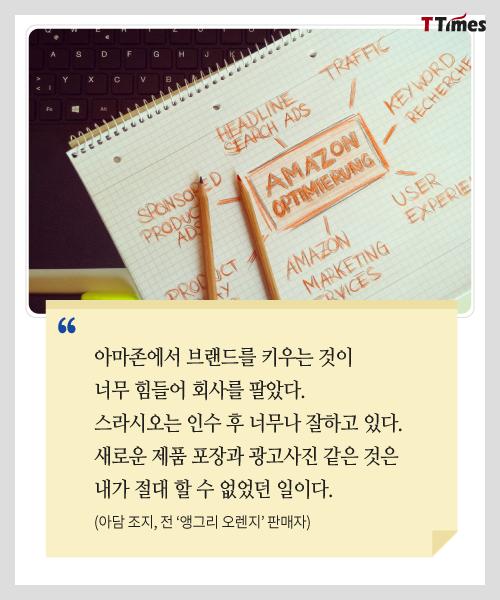 TTimes
TRAFFIC
HEADLINE
SEARCH ADS
KEYWORD
RECHERCHE
AMAZON
OPTIMIERUNG
SPONSORED
PRODUCT
ADS
USER
AMAZON
MARKETING
PRODUCT
“
아마존에서 브랜드를 키우는 것이
너무 힘들어 회사를 팔았다.
스라시오는 인수 후 너무나 잘하고 있다.
새로운 제품 포장과 광고사진 같은 것은
내가 절대 할 수 없었던 일이다.
(아담 조지, 전 ‘앵그리 오렌지’ 판매자)